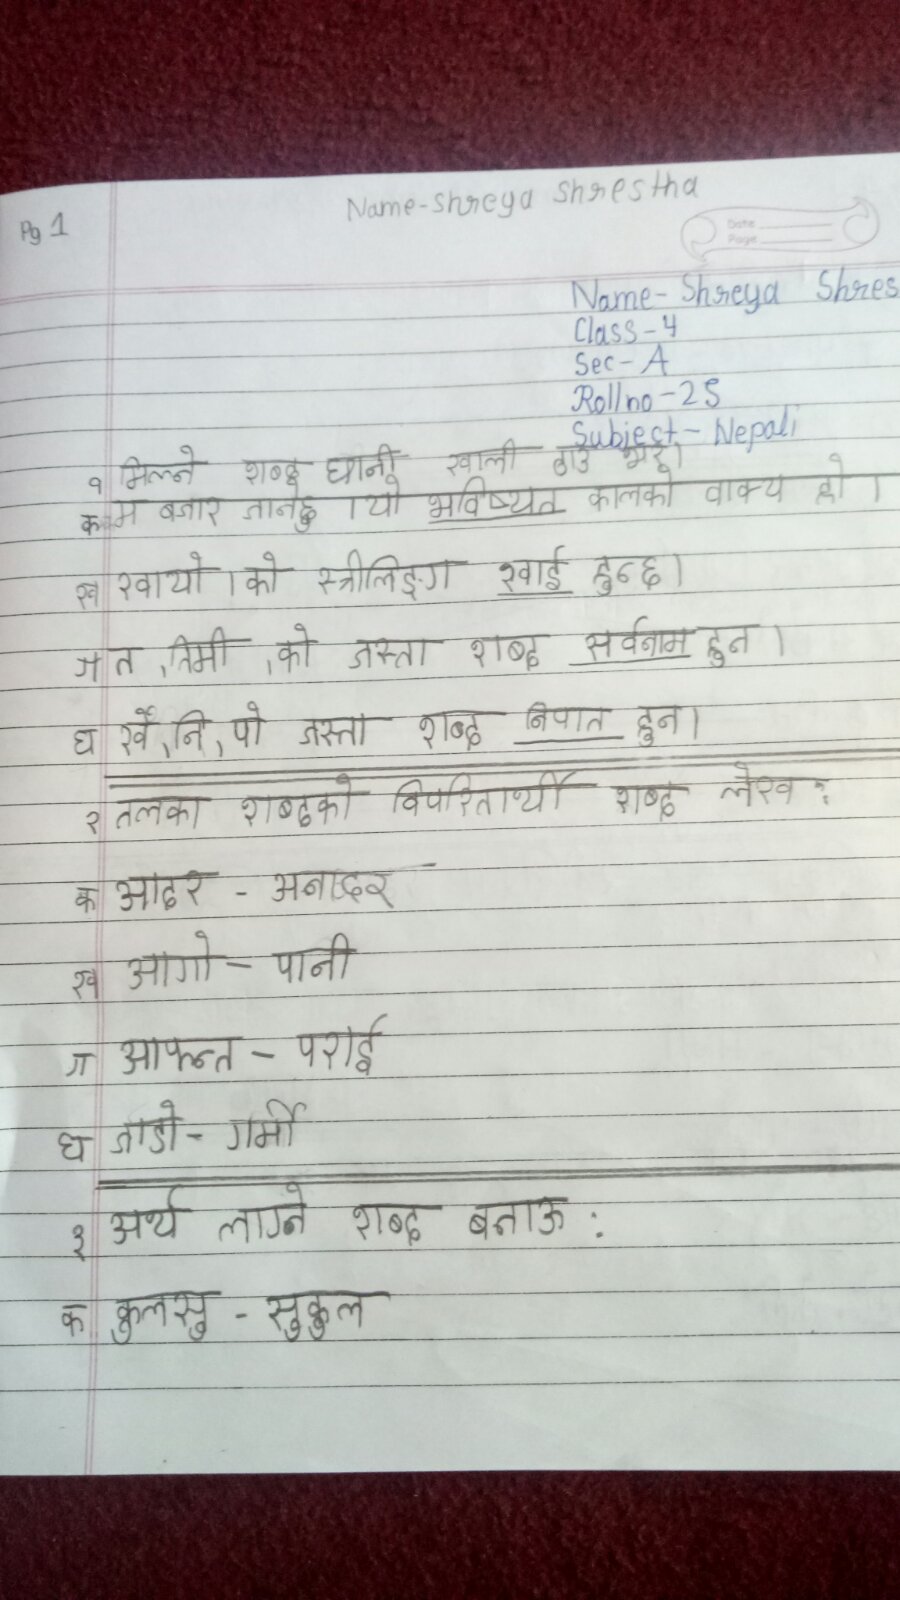 Pg 1
Name-Shreya Shrestha
Date
Page
Name- Shreya Shres
Class-4
Sec-A
Roll no-25
Subject- Nepali
१ मिल्ने शब्द छानी खाली ठाउँ भर।
क म बजार जानेछु ।यो भविष्यत कालको वाक्य हो ।
ख खायो ।को स्त्रीलिङ्ग खाई हुन्छ।
ग त ,तिमी ,को जस्ता शब्द सर्वनाम हुन ।
घ खै ,नि ,पो जस्ता शब्द निपात हुन।
२ तलका शब्दको विपरितार्थी शब्द लेख :
क आदर - अनादर
ख आगो - पानी
ग आफन्त - पराई
घ जाडो - गर्मी
३ अर्थ लाग्ने शब्द बनाऊ :
क कुलसु - सुकुल